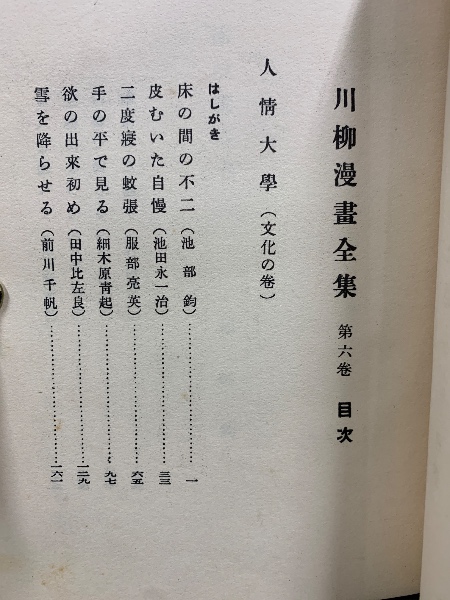 川柳漫畫全集 第六卷 目次
人情大學（文化の卷）
はしがき
床の間の不二（池部鈞）…………………一
皮むいた自慢（池田永一治）…………………三三
二度寢の蚊張（服部亮英）…………………六五
手の平で見る（細木原靑起）…………………九七
欲の出來初め（田中比左良）…………………一二九
雪を降らせる（前川千帆）…………………一六一